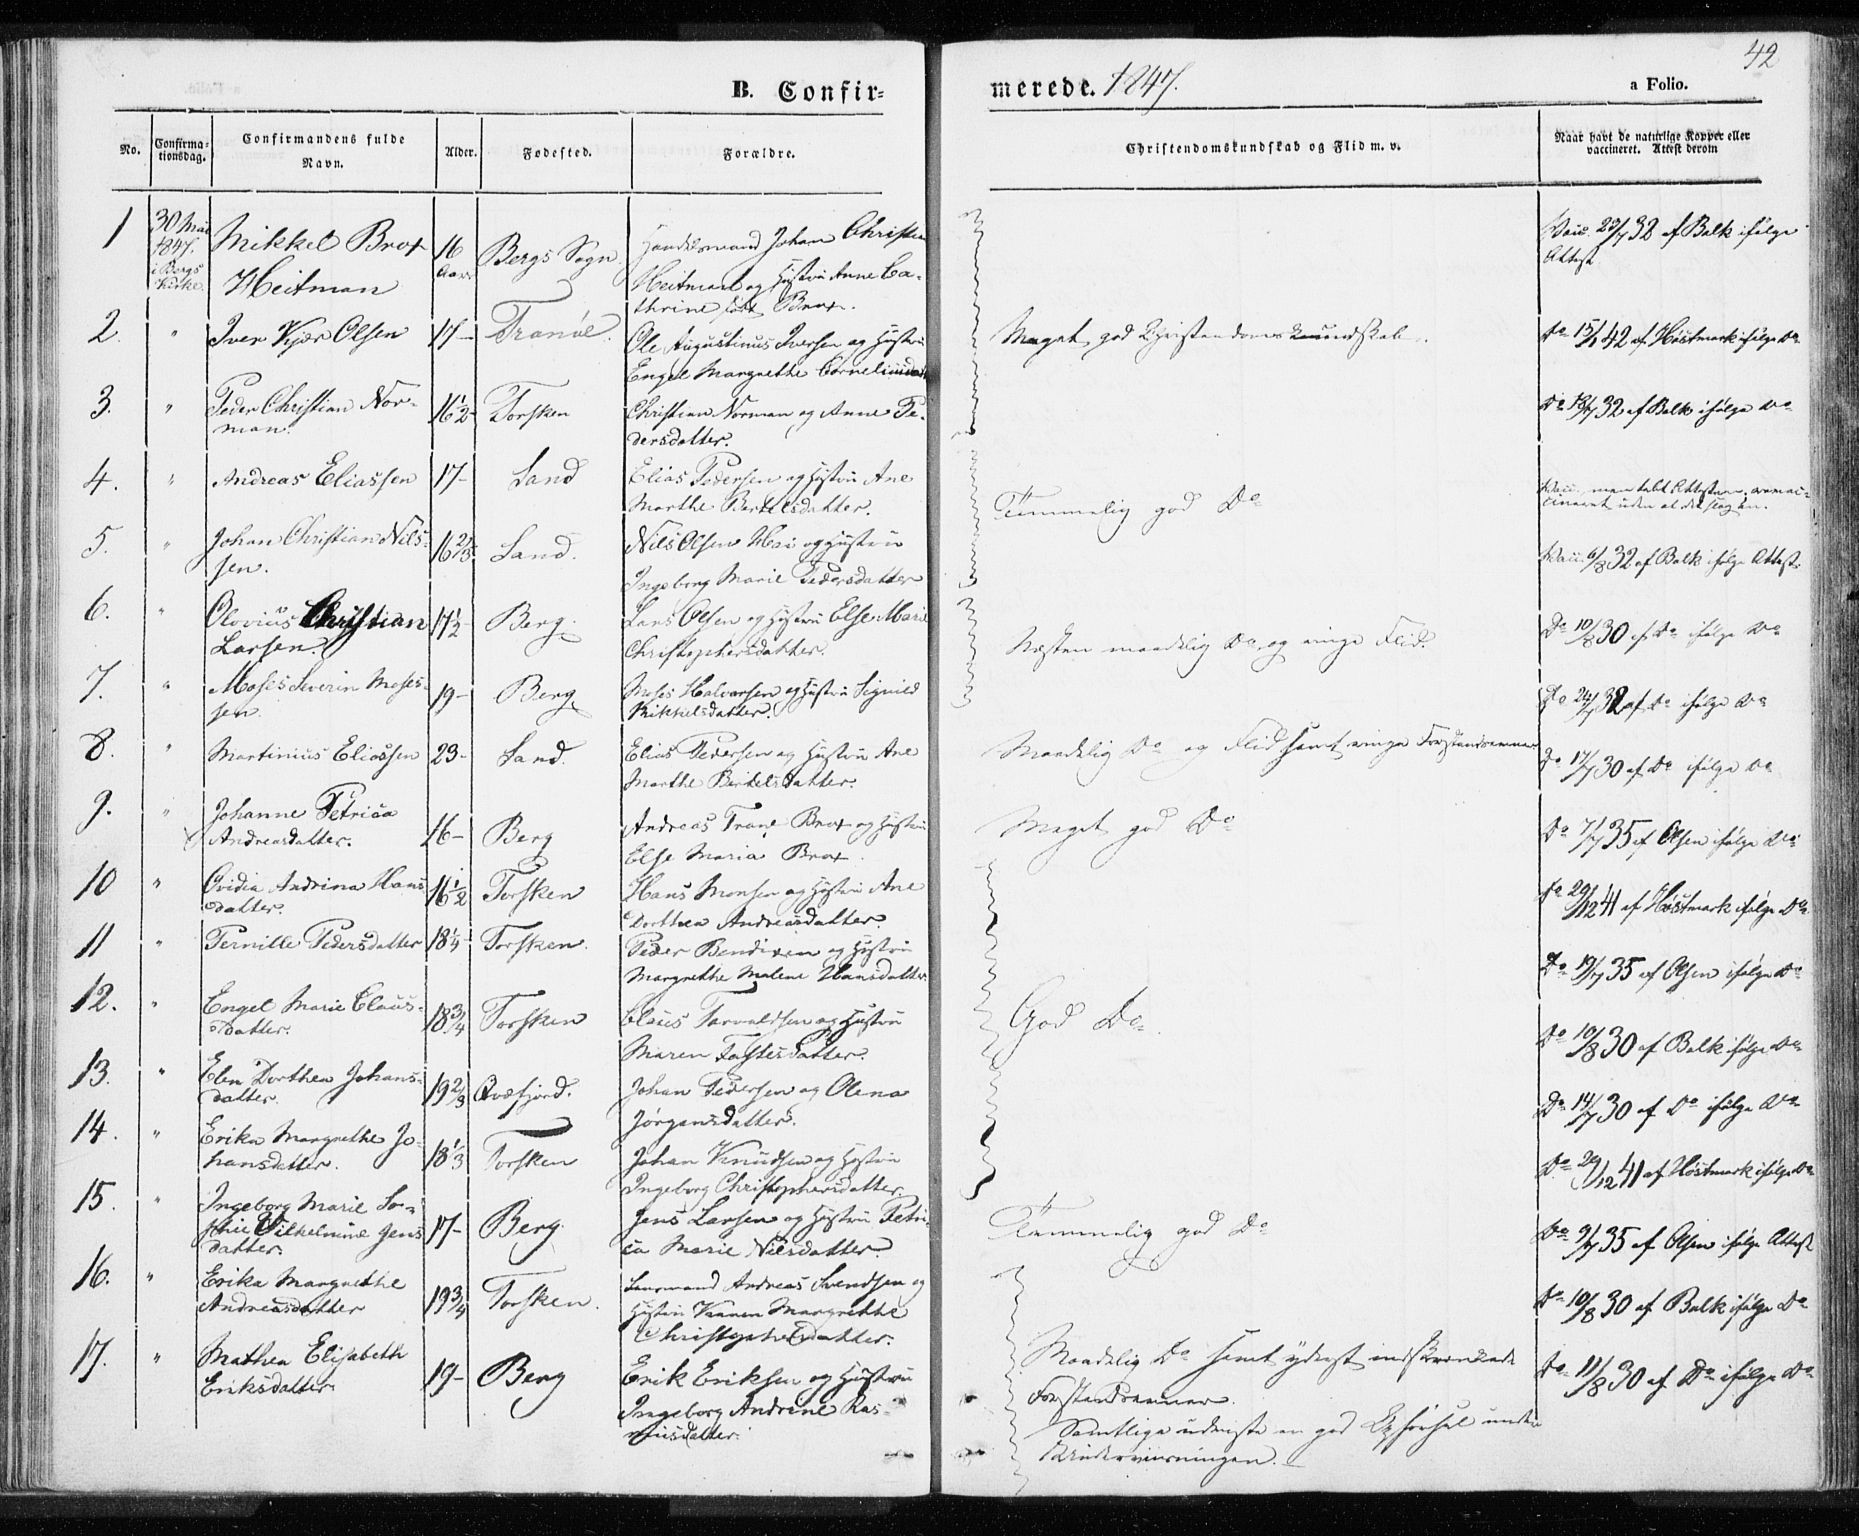 42
B. Confir-
merede. 1847.
a Folio.
No.
Confirma-
tionsdag.
Confirmandens fulde
Navn.
Alder.
Fødested.
Forældre.
Christendomskundskab og Flid m. v.
Naar havt de naturlige Kopper eller
vaccineret. Attest derom
1 30 Mai 1847. i Bergs Kirke. Mikkel Brox Heitman 16 Aar Bergs Sogn Handelsmand Johan Christian Heitman og Hustru Anne Ca-
thrine født Brox. Vacc. 20/7 32 af Balk ifølge Attest
2. " Iver Kjær Olsen 17- Tranøe. Ole Augustinus Iversen og Hustru
Engel Margrethe Corneliusdatt Meget god Christendomskundskab. Do 15/1 42 af Høstmark ifølge Do
3. " Peder Christian Nor-
man. 16 1/2 Torsken Christian Norman og Anne Pe-
dersdatter. Do 13/7 32 af Balk ifølge Do
4. " Andreas Eliassen 17- Sand Elias Pedersen og Hustru Ane
Marthe Bertelsdatter. Temmelig god Do Vacc. men tabt Attesten, revac-
cineret uden at det slog an.
5. " Johan Christian Nils-
sen. 16 2/3 Sand. Nils Olsen og Hustru
Ingeborg Marie Pedersdatter Vacc. 6/8 32 af Balk ifølge Attest
6. " Olovius Christian
Larsen. 17 1/2 Berg. Lars Olsen og Hustru Else Marie
Christophersdatter. Næsten maadelig Do og ringe Flid. Do 10/8 30 af Do ifølge Do
7. " Moses Severin Moses-
sen. 19- Berg Moses Halvorsen og Hustru Signild
Mikkelsdatter. Do 24/7 32 af Do ifølge Do
8. " Martinius Eliassen 23- Sand. Elias Pedersen og Hustru Ane
Marthe Bertelsdatter. Maadelig Do og Flid samt ringe Forstandsevner Do 17/7 30 af Do ifølge Do
9. " Johanne Petrica
Andreasdatter. 16- Berg Andreas Trane Brox og Hustru
Else Maria Brox. Meget god Do Do 7/7 35 af Olsen ifølge Do
10 " Ovidia Andrina Hans
datter. 16 1/2 Torsken Hans Monsen og Hustru Ane
Dorthea Andreasdatter. Do 29/12 41 af Høstmark ifølge Do
11 " Pernille Pedersdatter 18 1/4 Torsken. Peder Bendixen og Hustru
Margrethe Malene Hansdatter. Do 19/7 35 af Olsen ifølge Do
12. " Engel Marie Claus-
datter. 18 3/4 Torsken Claus Torvaldsen og Hustru
Maren Tostesdatter. God Do. Do 10/8 30 af Balk ifølge Do
13. " Elen Dorthea Johans-
datter. 19 2/3 Qvæfjord. Johan Pedersen og Olena
Jørgensdatter. Do 14/7 30 af Do ifølge Do
14. " Erika Margrethe Jo-
hansdatter. 18 1/3 Torsken Johan Knudsen og Hustru
Ingeborg Christophersdatter. Do 29/12 41 af Høstmark ifølge Do
15. " Ingeborg Marie So-
phie Vilhelmine Jens
datter. 17- Berg Jens Larsen og Hustru Petri-
ca Marie Nilsdatter. Temmelig god Do Do 9/7 35 af Olsen ifølge Attest
16. " Erika Margrethe
Andreasdatter 19 3/4 Torsken. Lensmand Andreas Svendsen og
Hustru Karen Margrethe
Christophersdatter. Do 10/8 30 af Balk ifølge Do
17. " Mathea Elisabeth
Eriksdatter. 19- Berg Erik Eriksen og Hustru
Ingeborg Andrine Ras-
musdatter. Maadelig Do samt yderst indskrænkede
Forstandsevner. Do 11/8 30 af Do ifølge Do
Samtlige udviste en god Opførsel under
Underviisningen.